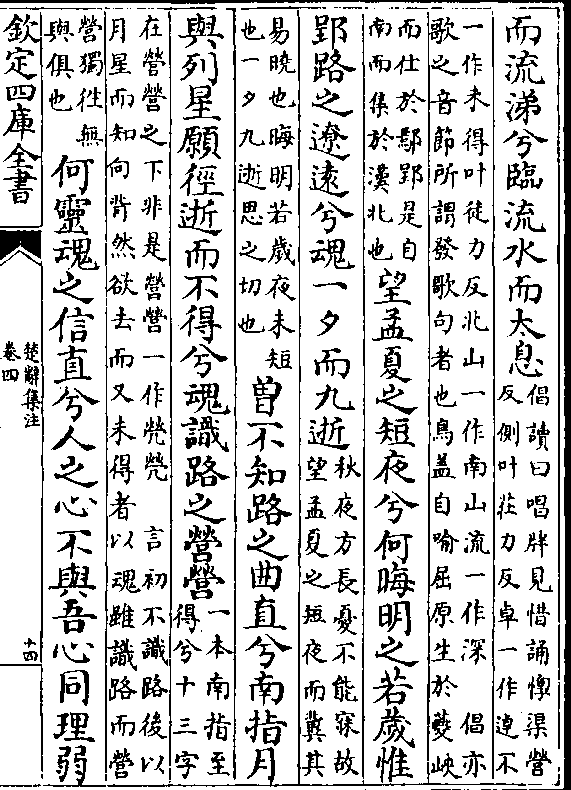 而流涕兮臨流水而太息
倡讀曰唱牉見惜誦渠營
反側叶莊力反卓一作逴不
一作未得叶徒力反北山一作南山流一作深　倡亦
歌之音節所謂發歌句者也鳥盖自喻屈原生於夔峽
而仕於鄢郢是自
南而集於漢北也
望孟夏之短夜兮何晦明之若歲惟
郢路之遼遠兮魂一夕而九逝
秋夜方長憂不能寐故
望孟夏之短夜而冀其
易曉也晦明若歲夜未短
也一夕九逝思之切也
曽不知路之曲直兮南指月
與列星願徑逝而不得兮魂識路之營營
一本南指至
得兮十三字
在營營之下非是營營一作煢煢　言初不識路後以
月星而知向背然欲去而又未得者以魂雖識路而營
營獨徃無
與俱也
何靈魂之信直兮人之心不與吾心同理弱
欽定四庫全書
楚辭集注
卷四
十四